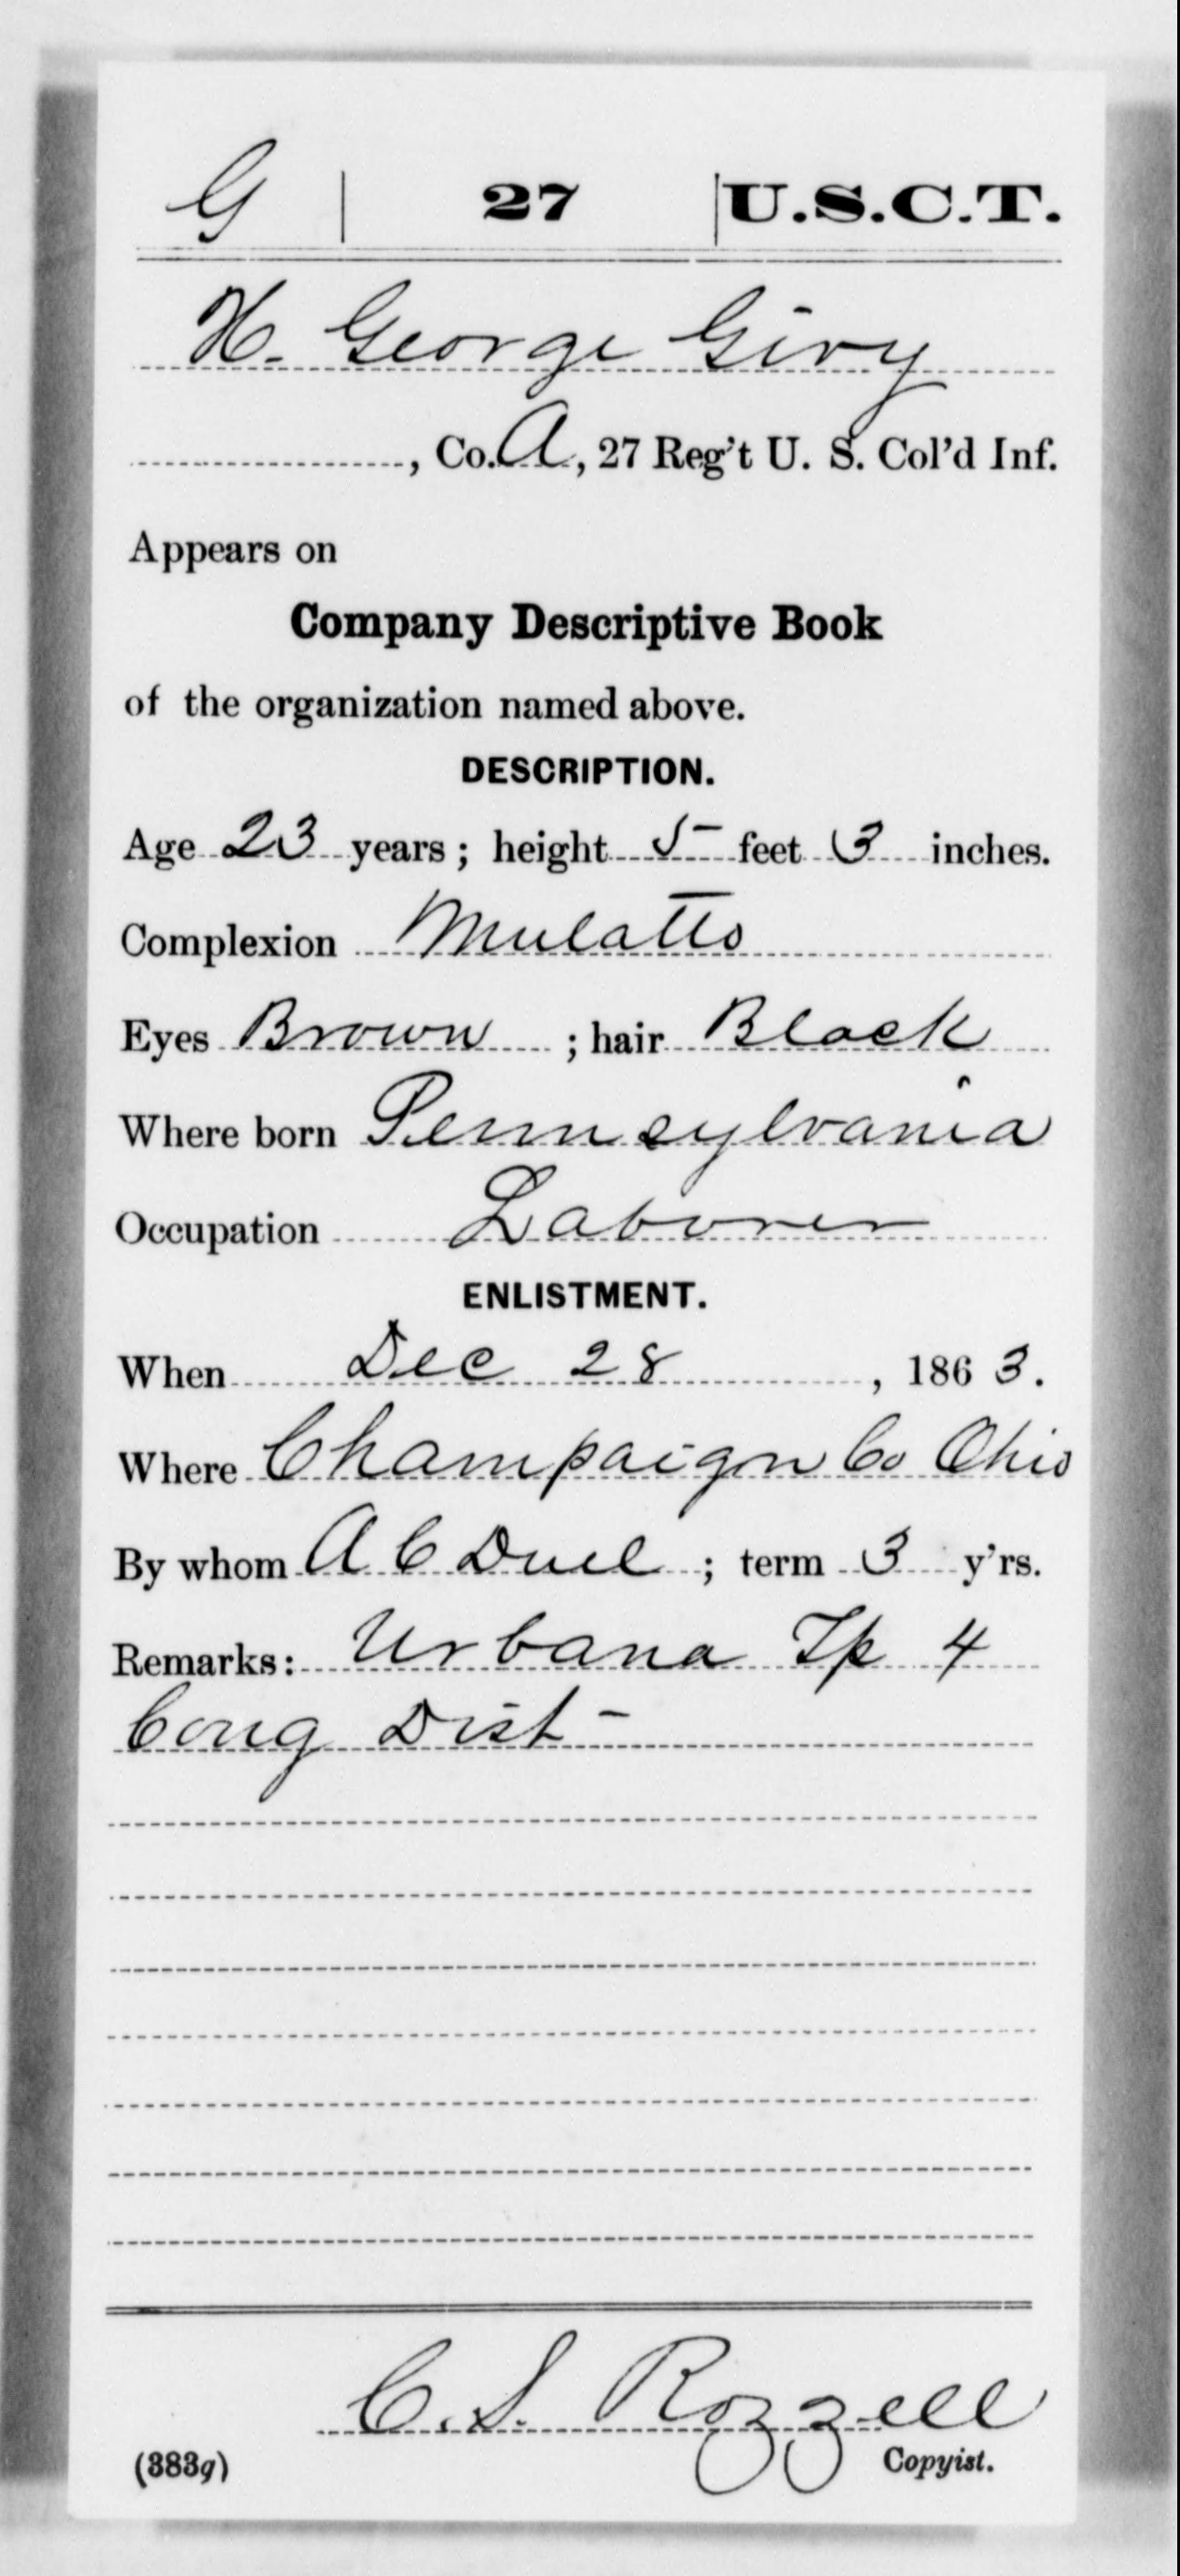 G | 27 | U.S.C.T.
H. George Givy
, Co. A, 27 Reg't U. S. Col'd Inf.
Appears on
Company Descriptive Book
of the organization named above.
DESCRIPTION.
Age 23 years; height 5 feet 3 inches.
Complexion Mulatto
Eyes Brown ; hair Black
Where born Pennsylvania
Occupation Laborer
ENLISTMENT.
When Dec 28 , 1863.
Where Champaign Co Ohio
By whom A C Duel ; term 3 y'rs.
Remarks: Urbana Tp 4
Cong Dist -
C. S. Rozzell
(383g) Copyist.